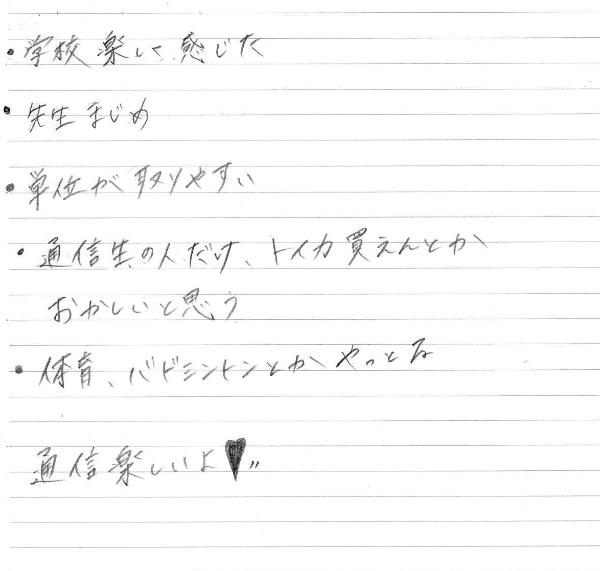 ・学校楽しく感じた
・先生まじめ
・単位が取りやすい
・通信生の人だけ、トイカ買えんとか
おかしいと思う
・体育、バドミントンとかやっとる
通信楽しいよ♥〃